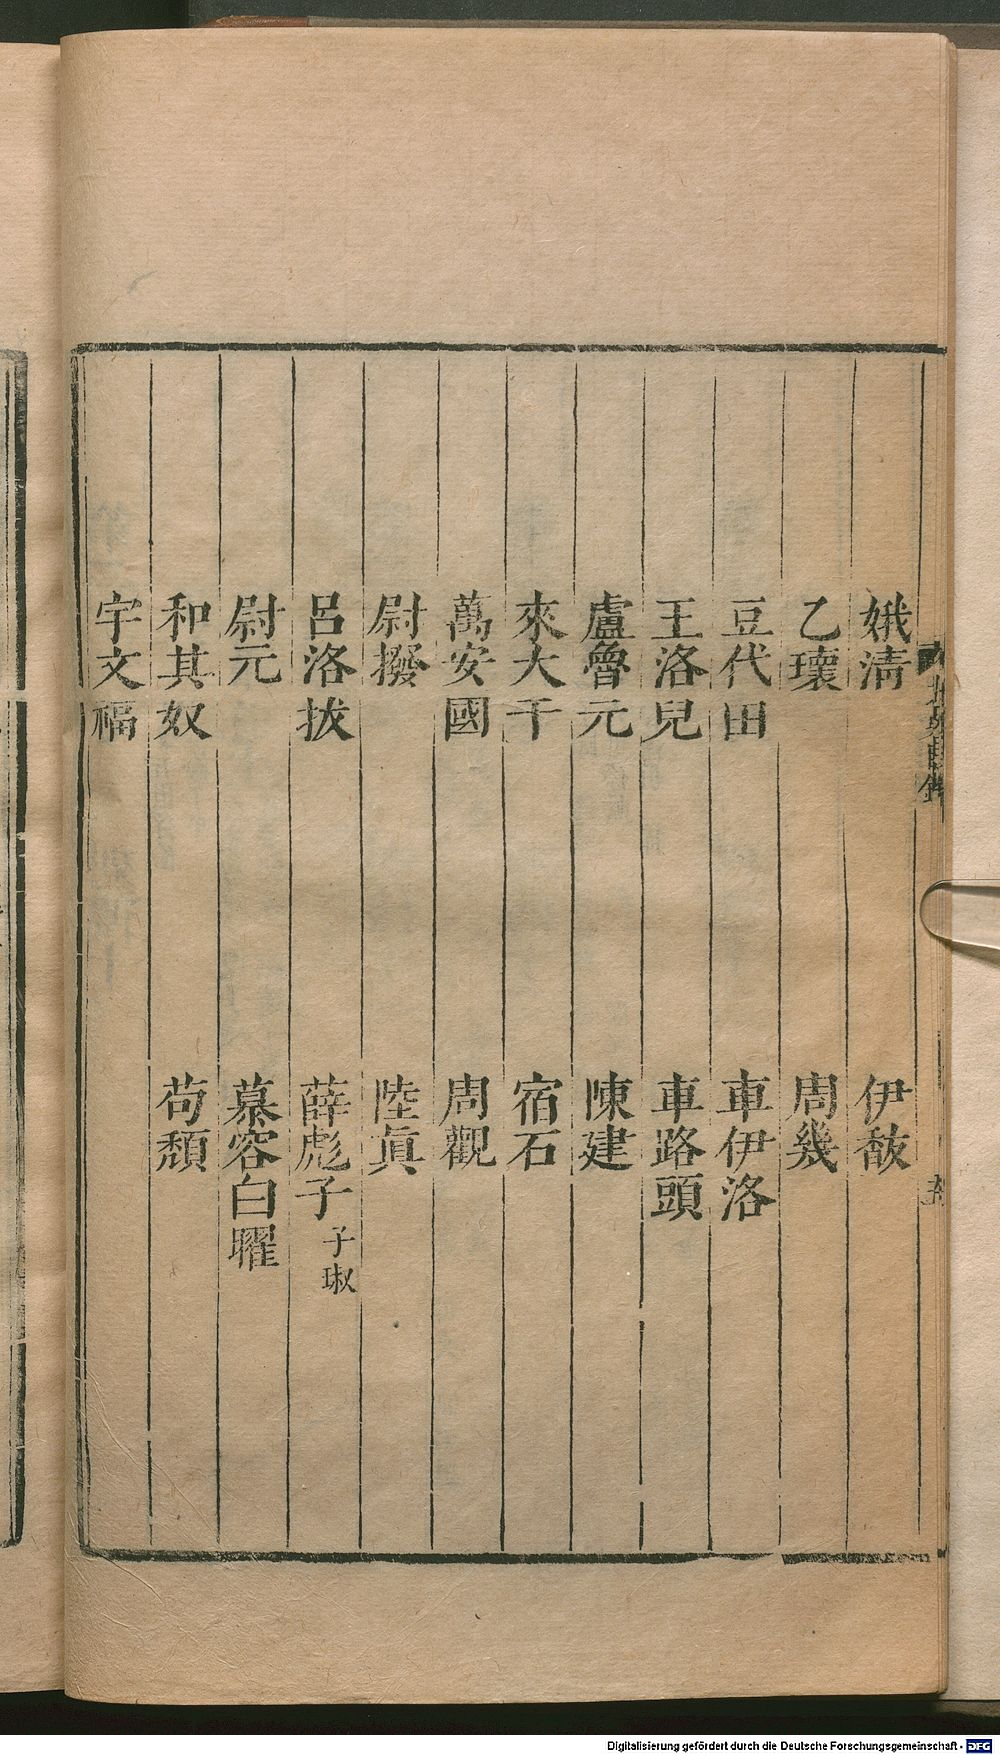 娥清　伊馛
乙瓌　周幾
豆代田　車伊洛
王洛兒　車路頭
盧魯元　陳建
來大干　宿石
萬安國　周觀
尉撥　陸眞
呂洛拔　薛彪子　子琡
尉元　慕容白曜
和其奴　苟頹
宇文福
目錄
Digitalisierung gefördert durch die Deutsche Forschungsgemeinschaft - DFG